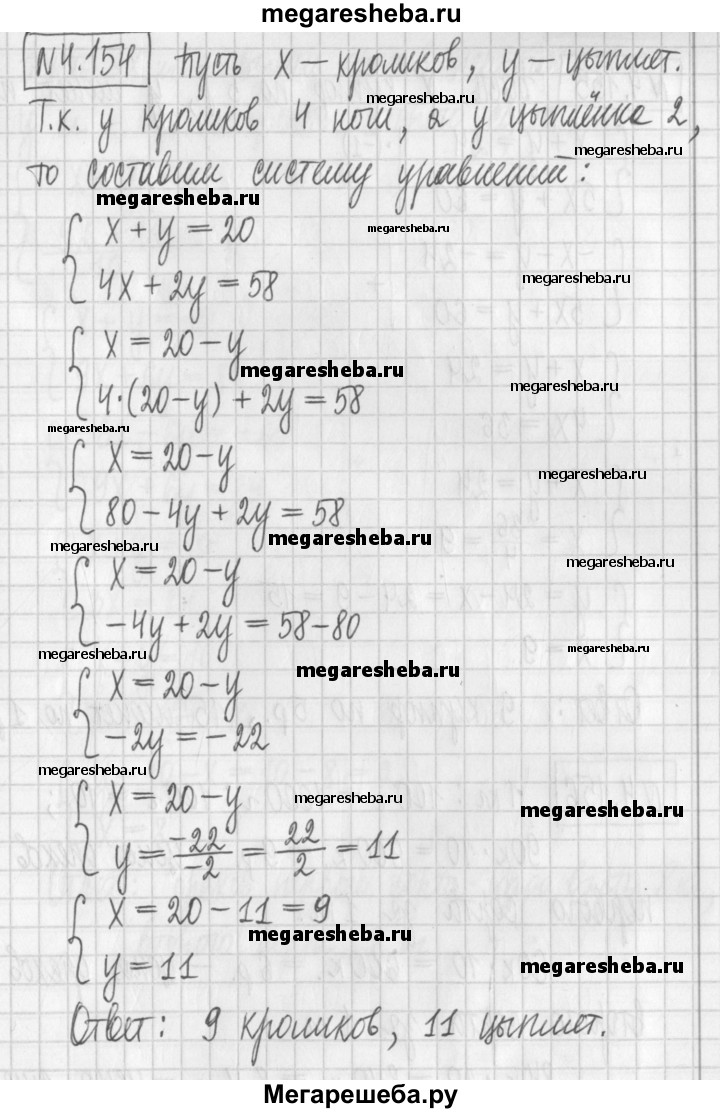 megaresheba.ru
N4.154 Пусть x – кроликов, y – цыплят.
megaresheba.ru
Т.к. у кроликов 4 ног, а у цыплёнка 2,
megaresheba.ru
то составим систему уравнений:
megaresheba.ru
x + y = 20
megaresheba.ru
4x + 2y = 58
megaresheba.ru
x = 20 – y
megaresheba.ru
4·(20–y) + 2y = 58
megaresheba.ru
megaresheba.ru
x = 20 – y
megaresheba.ru
80 – 4y + 2y = 58
megaresheba.ru
megaresheba.ru
x = 20 – y
megaresheba.ru
–4y + 2y = 58–80
megaresheba.ru
megaresheba.ru
megaresheba.ru
x = 20 – y
–2y = –22
megaresheba.ru
x = 20 – y
megaresheba.ru
megaresheba.ru
y = -22/-2 = 22/2 = 11
x = 20 – 11 = 9
megaresheba.ru
y = 11
megaresheba.ru
Ответ: 9 кроликов, 11 цыплят.
Мегарешеба.ру